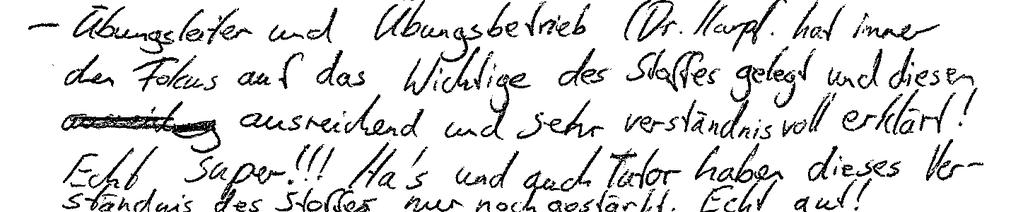 – Übungsleiter und Übungsbetrieb (Dr. Karpf. hat immer
den Fokus auf das Wichtige des Stoffes gelegt und diesen
ausreichend und sehr verständnisvoll erklärt!
Echt super!!! Ha's und auch Tutor haben dieses Ver-
ständnis des Stoffes nur noch gestärkt. Echt gut!